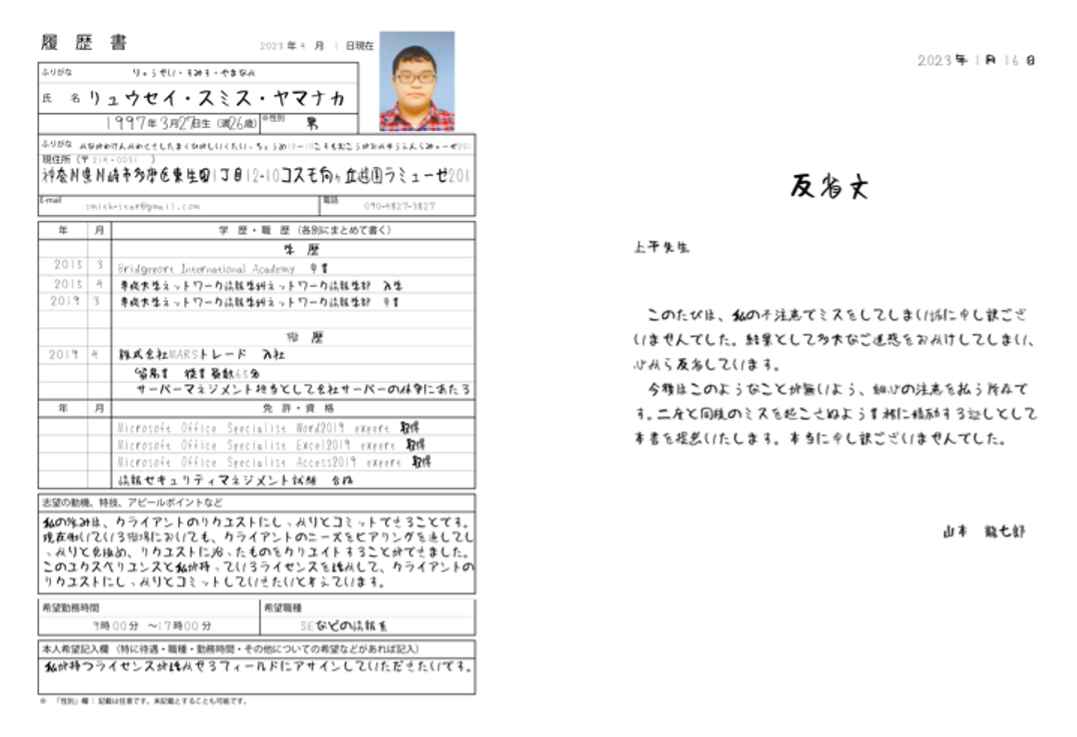 履 歴 書
2023 年 4 月 1 日現在
ふりがな りゅうせい・すみす・やまなか
氏 名 リュウセイ・スミス・ヤマナカ
1997年3月27日生（満26歳） ※性別 男
ふりがな
現住所（〒214-0031 ）
神奈川県川崎市多摩区東生田1丁目12-10コスモ向ヶ丘遊園ラミューゼ201
E-mail smith-star@gmail.com 電話 090-4827-3827
年 月 学 歴・職 歴（各別にまとめて書く）
学 歴
2015 3 Bridgeport International Academy 卒業
2015 4 専修大学ネットワーク情報学科ネットワーク情報学部 入学
2019 3 専修大学ネットワーク情報学科ネットワーク情報学部 卒業
職 歴
2019 4 株式会社MARSトレード 入社
貿易業 従業員数65名
サーバーマネジメント担当として会社サーバーの保守にあたる
年 月 免 許・資 格
Microsoft Office Specialist Word2019 expert 取得
Microsoft Office Specialist Excel2019 expert 取得
Microsoft Office Specialist Access2019 expert 取得
情報セキュリティマネジメント試験 合格
志望の動機、特技、アピールポイントなど
私の強みは、クライアントのリクエストにしっかりとコミットできることです。
現在働いている職場においても、クライアントのニーズをヒアリングを通してし
っかりと見極め、リクエストに沿ったものをクリエイトすることができました。
このエクスペリエンスと私が持っているライセンスを活かして、クライアントの
リクエストにしっかりとコミットしていきたいと考えています。
希望勤務時間 希望職種
9時00分 〜17時00分 SEなどの情報系
本人希望記入欄（特に待遇・職種・勤務時間・その他についての希望などがあれば記入）
私が持つライセンスが活かせるフィールドにアサインしていただきたいです。
※ 「性別」欄：記載は任意です。未記載とすることも可能です。
2023年1月16日
反省文
上平先生
このたびは、私の不注意でミスをしてしまい誠に申し訳ござ
いませんでした。結果として多大なご迷惑をおかけしてしまい、
心から反省しています。
今後はこのようなことが無いよう、細心の注意を払う所存で
す。二度と同様のミスを起こさぬよう業務に精励する証しとして
本書を提出いたします。本当に申し訳ございませんでした。
山本 龍七郎